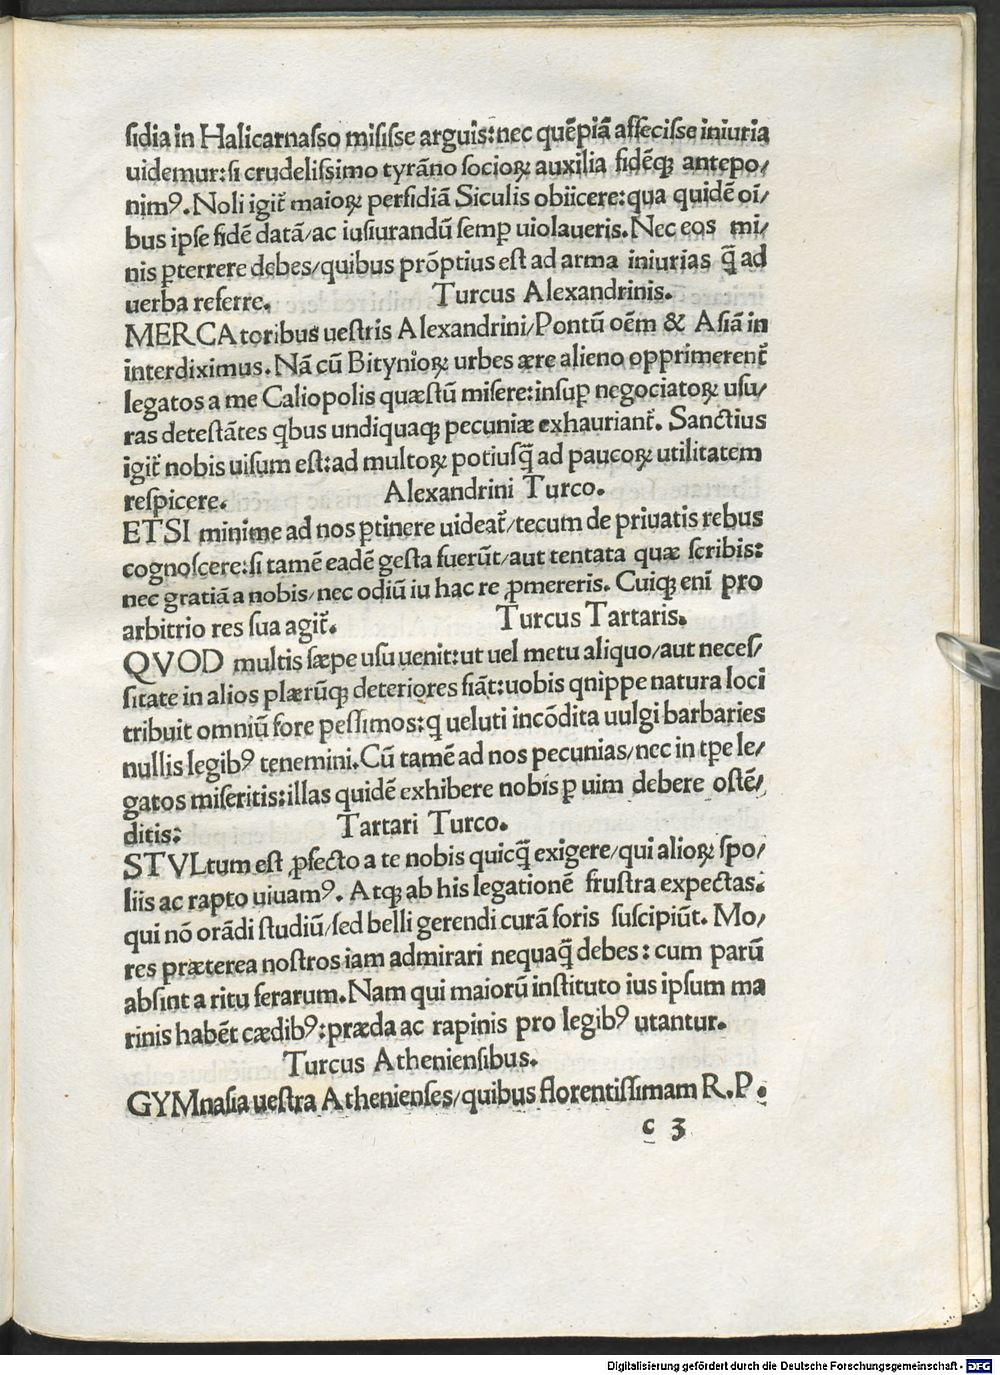 ſidia in Halicarnaſſo miſiſſe arguis:nec quẽpiã affeciſſe iniuria
uidemur:ſi crudeliſſimo tyrãno ſocioꝝ auxilia fidẽqꝫ antepo/
nimꝰ.Noli igit᷑ maioꝝ perfidiã Siculis obiicere:qua quidẽ oĩ/
bus ipſe fidẽ datã/ac iuſiurandũ ſemꝑ uiolaueris.Nec eos mi/
nis ꝑterrere debes/quibus prõptius eſt ad arma iniurias q̃̃ ad
uerba referre. Turcus Alexandrinis.
MERCAtoribus ueſtris Alexandrini/Pontũ oẽm & Aſiã in
interdiximus.Nã cũ Bitynioꝝ urbes ære alieno opprimerent᷑
legatos a me Caliopolis quæſtũ miſere:inſuꝑ negociatoꝝ uſu/
ras deteſtãtes qbus undiquaqꝫ pecuniæ exhauriant᷑. Sanctius
igit᷑ nobis uiſum eſt:ad multoꝝ potiuſq̃ ad paucoꝝ utilitatem
reſpicere. Alexandrini Turco.
ETSI minime ad nos ꝑtinere uideat᷑/tecum de priuatis rebus
cognoſcere:ſi tamẽ eadẽ geſta fuerũt/aut tentata quæ ſcribis:
nec gratiã a nobis/nec odiũ iu hac re ꝓmereris. Cuiqꝫ enĩ pro
arbitrio res ſua agit᷑. Turcus Tartaris.
QVOD multis ſæpe uſu uenit:ut uel metu aliquo/aut neceſ/
ſitate in alios plærũqꝫ deteriores fiãt:uobis qnippe natura loci
tribuit omniũ fore peſſimos:q ueluti incõdita uulgi barbaries
nullis legibꝰ tenemini.Cũ tamẽ ad nos pecunias/nec in tꝑe le/
gatos miſeritis:illas quidẽ exhibere nobis ꝑ uim debere oſtẽ/
ditis: Tartari Turco.
STVLtum eſt ꝓfecto a te nobis quicq̃ exigere/qui alioꝝ ſpo/
liis ac rapto uiuamꝰ. Atqꝫ ab his legationẽ fruſtra expectas:
qui nõ orãdi ſtudiũ/ſed belli gerendi curã foris ſuſcipiũt. Mo/
res præterea noſtros iam admirari nequaq̃ debes: cum parũ
abſint a ritu ferarum.Nam qui maiorũ inſtituto ius ipſum ma
rinis habẽt cædibꝰ:præda ac rapinis pro legibꝰ utantur.
Turcus Athenienſibus.
GYMnaſia ueſtra Athenienſes/quibus florentiſſimam R.P.
c 3
Digitalisierung gefördert durch die Deutsche Forschungsgemeinschaft - DFG